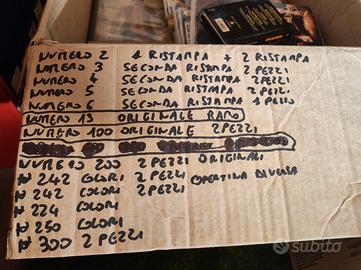 NUMERO 2 1 RISTAMPA + 2 RISTAMPA
NUMERO 3 SECONDA RISTAMPA 2 PEZZI
NUMERO 4 SECONDA RISTAMPA 2 PEZZI
NUMERO 5 SECONDA RISTAMPA 2 PEZZI
NUMERO 6 SECONDA RISTAMPA 1 PEZZO
NUMERO 13 ORIGINALE RARO
NUMERO 100 ORIGINALE 2 PEZZI
NUMERO 200 2 PEZZI ORIGINALI
N° 242 COLORI 2 PEZZI COPERTINA DIVERSA
N° 242 COLORI 2 PEZZI
N° 224 COLORI
N° 250 COLORI
N° 300 2 PEZZI
subito